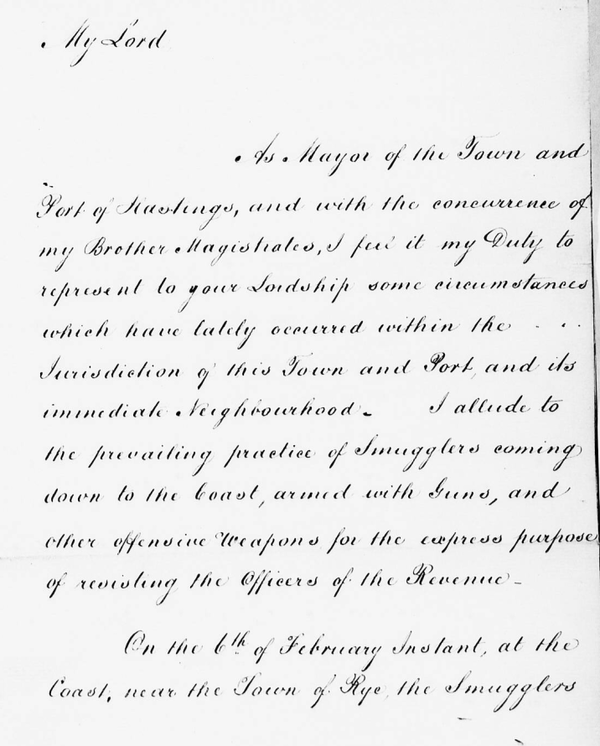 My Lord
As Mayor of the Town and
Port of Hastings, and with the concurrence of
my Brother Magistrates, I feel it my Duty to
represent to your Lordship some circumstances
which have lately occurred within the
Jurisdiction of this Town and Port, and its
immediate Neighbourhood. I allude to
the prevailing practice of Smugglers coming
down to the Coast, armed with Guns, and
other offensive Weapons for the express purpose
of resisting the Officers of the Revenue -
On the 6th of February Instant, at the
Coast, near the Town of Rye, the Smugglers